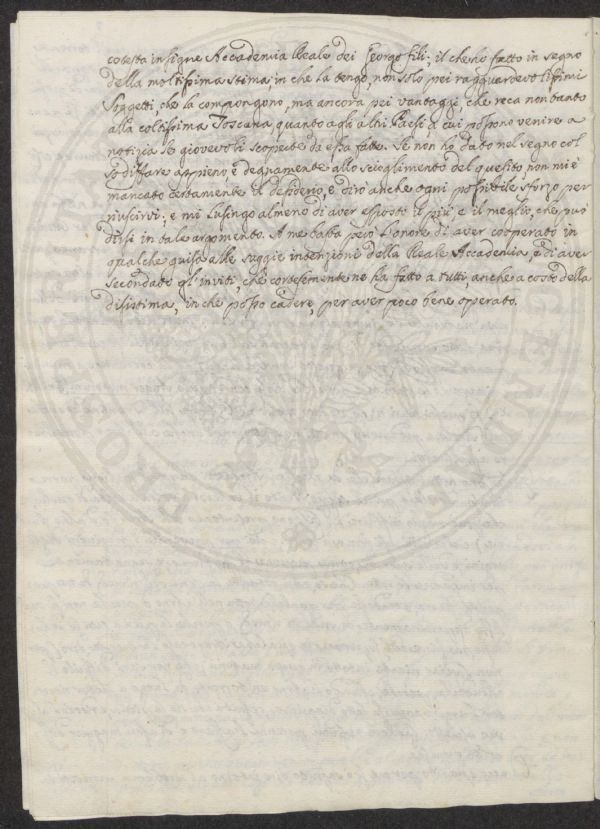 cotesta insigne Accademia Reale dei Georgofili; il che ho fatto in segno
della moltissima stima, in che la tengo, non solo pei ragguardevolissimi
Soggetti, che la compongono, ma ancora pei vantaggi, che reca non tanto
alla coltissima Toscana, quanto agli altri Paesi, a cui possono venire a
notizia le giovevoli scoperte da essa fatte. Se non ho dato nel segno col
sodisfare appieno, e degnamente allo scioglimento del quesito, non mi è
mancato certamente il desiderio, e dirò anche ogni possibile sforzo per
riuscirvi; e mi lusingo almeno di aver esposto il più, e il meglio, che può
dirsi in tale argomento. A me basta però l'onore di aver cooperato in
qualche guisa alle saggie intenzioni della Reale Accademia, e di aver
secondato gl'inviti, che cortesemente ne ha fatto a tutti, anche a costo della
disistima, in che posso cadere, per aver poco bene operato.
PROSPERITATI AUGENDAE